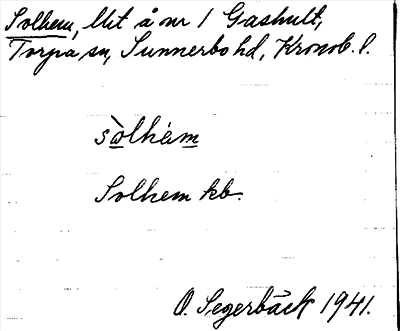 Solhem, lht å nr 1 Gashult,
Torpa sn, Sunnerbo hd, Kronob. l.
sòlhém
Solhem kb.
O. Segerbäck 1941.